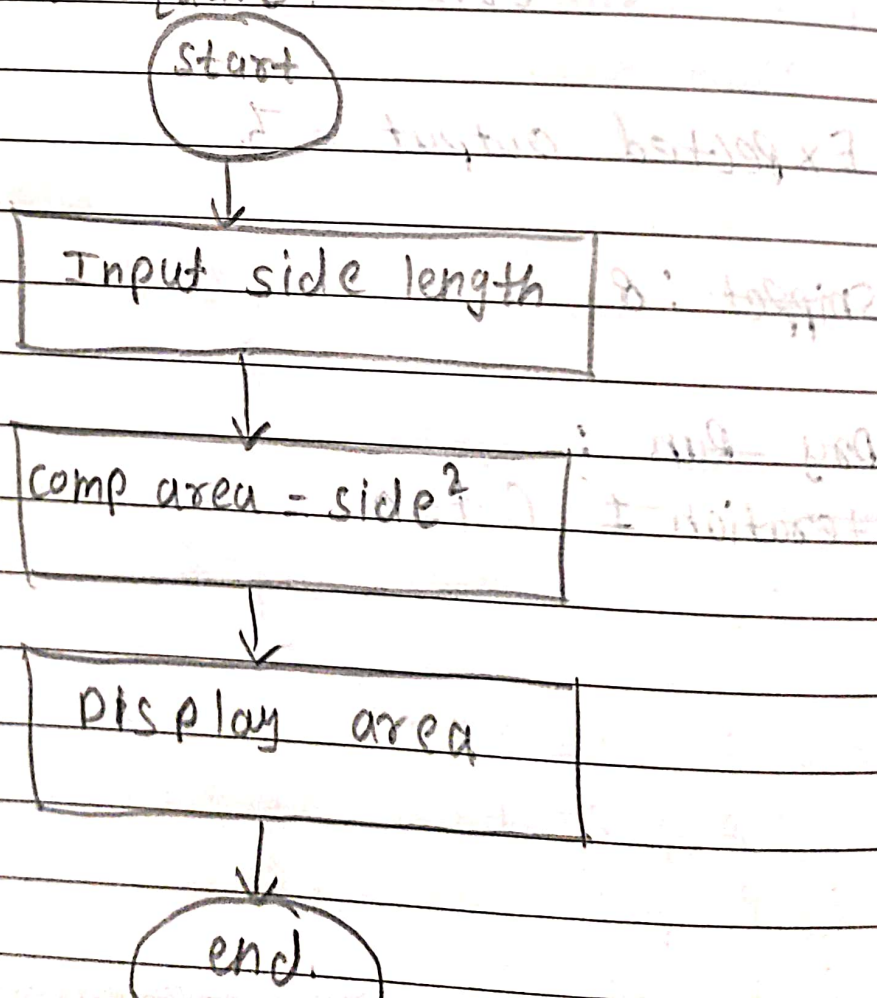 start
Input side length
comp area - side²
Display area
end.